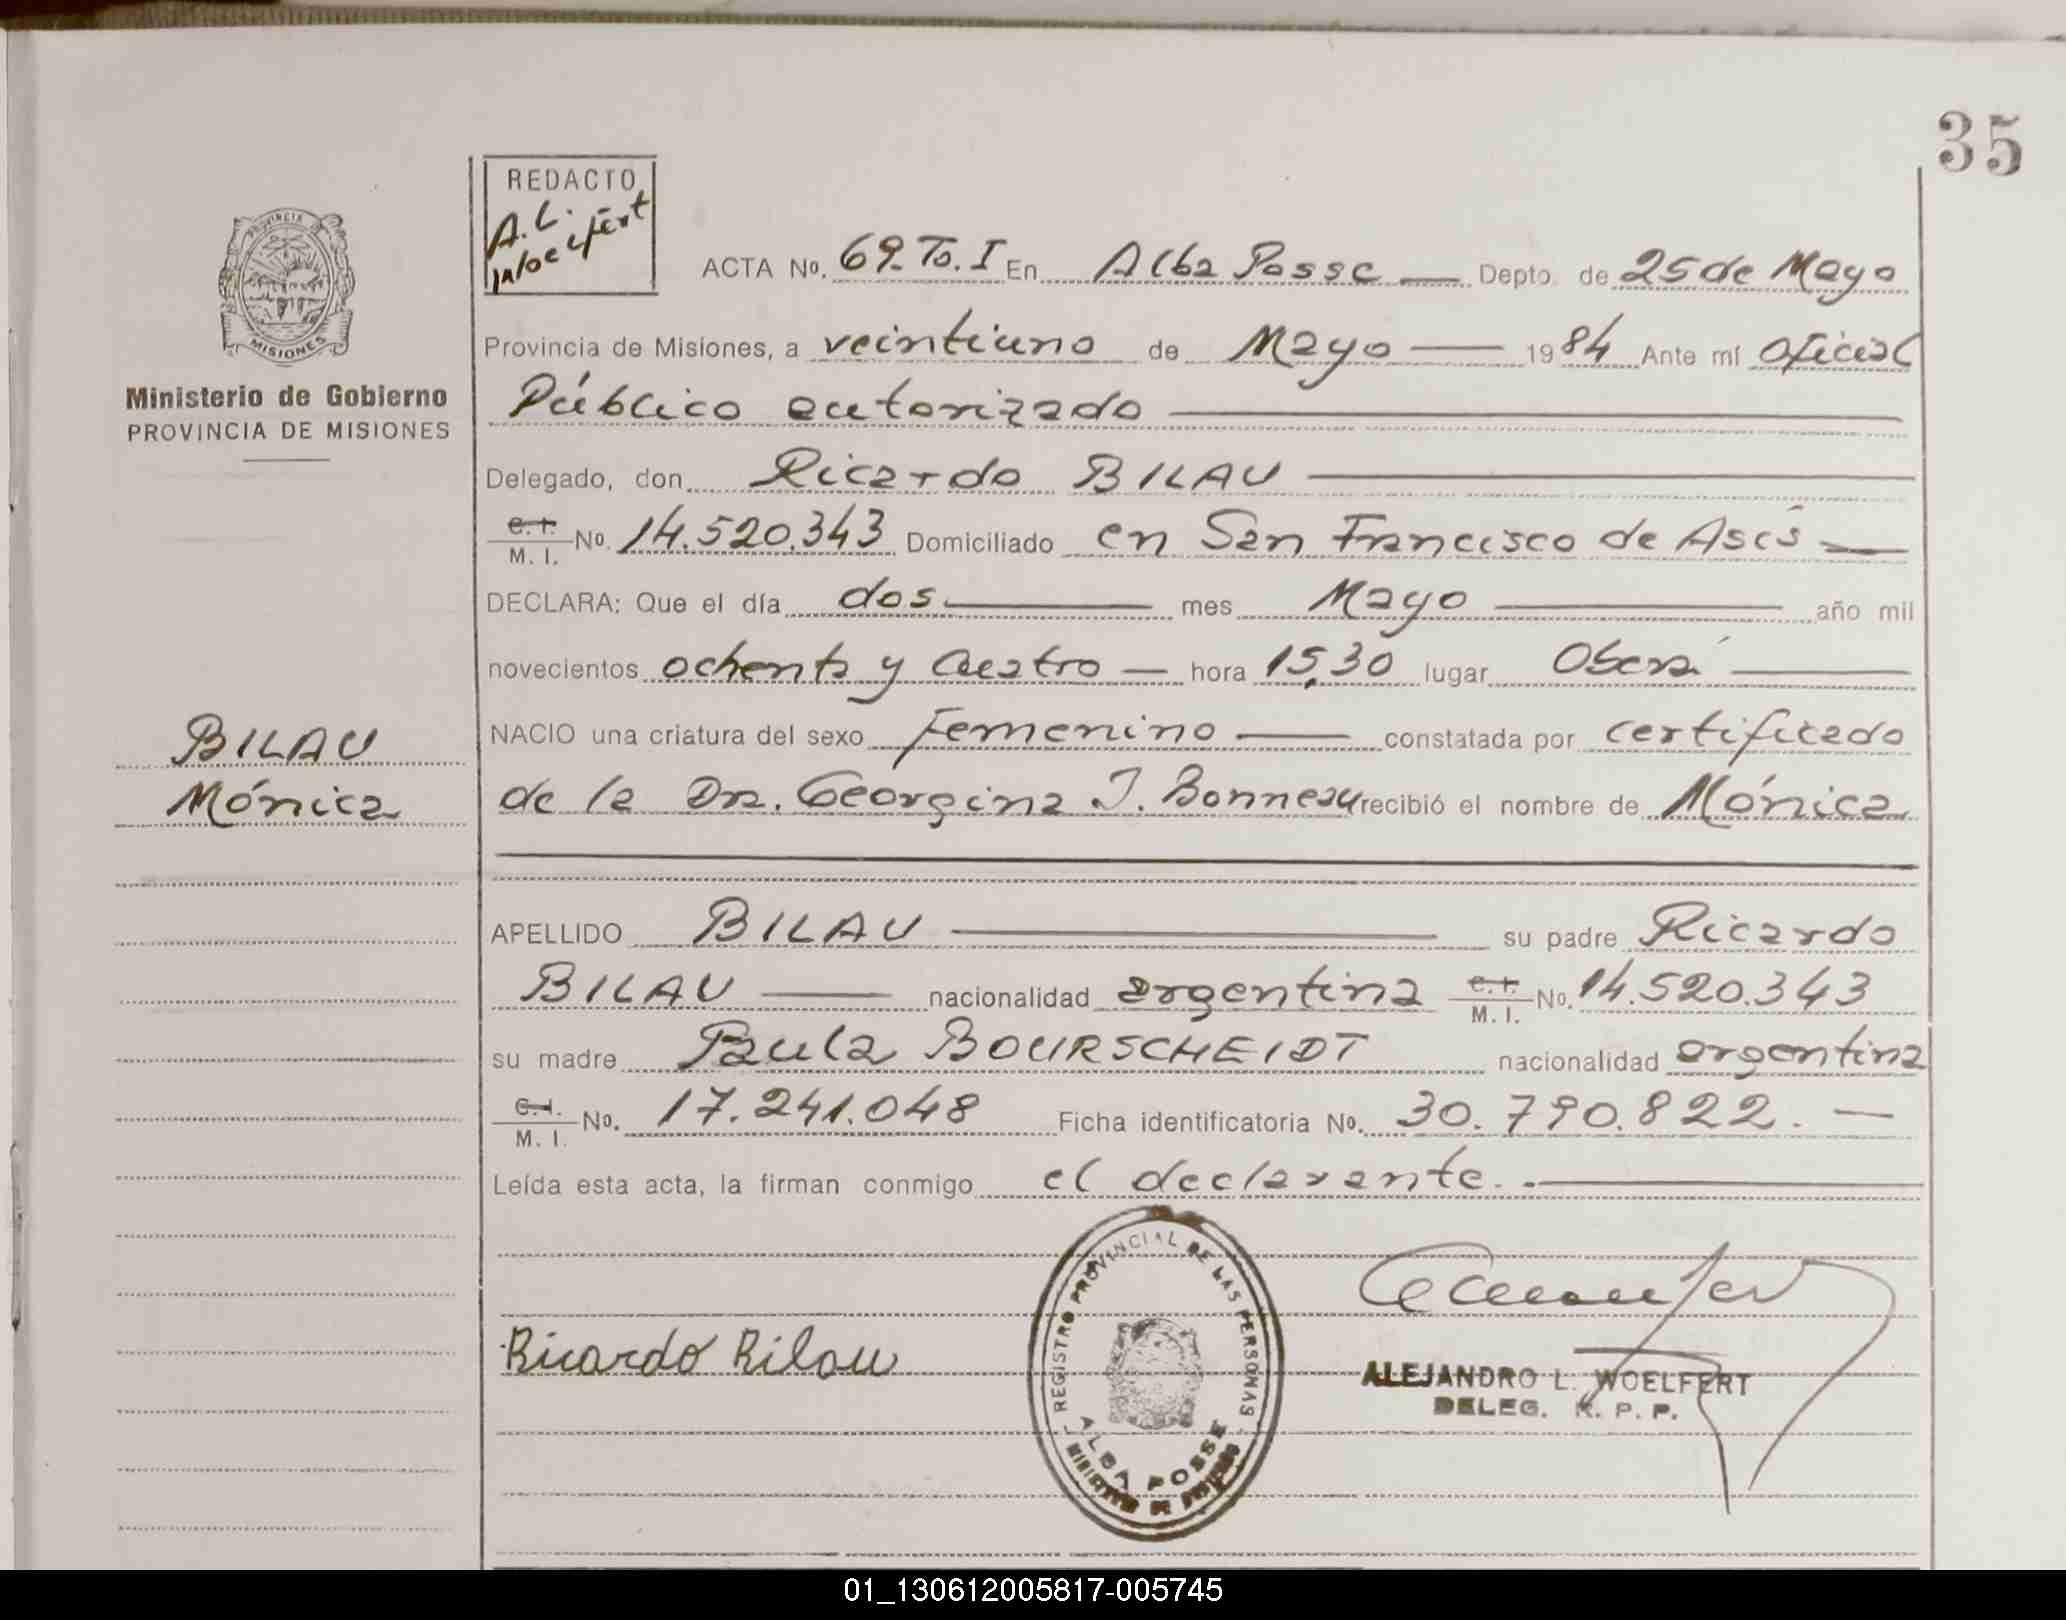 35
REDACTO
A. L.
Woelfert
PROVINCIA
MISIONES
Ministerio de Gobierno
PROVINCIA DE MISIONES
ACTA No. 69-To. I En Alba Posse — Depto. de 25 de Mayo
Provincia de Misiones, a veintiuno de Mayo — 1984 Ante mí Oficial
Público autorizado —
Delegado, don Ricardo BILAU —
C. I. / M. I. No. 14.520.343 Domiciliado en San Francisco de Asís —
DECLARA: Que el día dos — mes Mayo — año mil
novecientos ochenta y cuatro — hora 15,30 lugar Oberá —
NACIO una criatura del sexo femenino — constatada por certificado
de la Dra. Georgina J. Bonneau recibió el nombre de Mónica
BILAU
Mónica
APELLIDO BILAU — su padre Ricardo
BILAU — nacionalidad argentina C. I. / M. I. No. 14.520.343
su madre Paula BOURSCHEIDT nacionalidad argentina
C. I. / M. I. No. 17.241.048 Ficha identificatoria No. 30.790.822. —
Leída esta acta, la firman conmigo el declarante. . —
Ricardo Bilau
REGISTRO PROVINCIAL DE LAS PERSONAS
ALBA POSSE
MINISTERIO DE GOBIERNO
ALEJANDRO L. WOELFERT
DELEG. R. P. P.
01_130612005817-005745